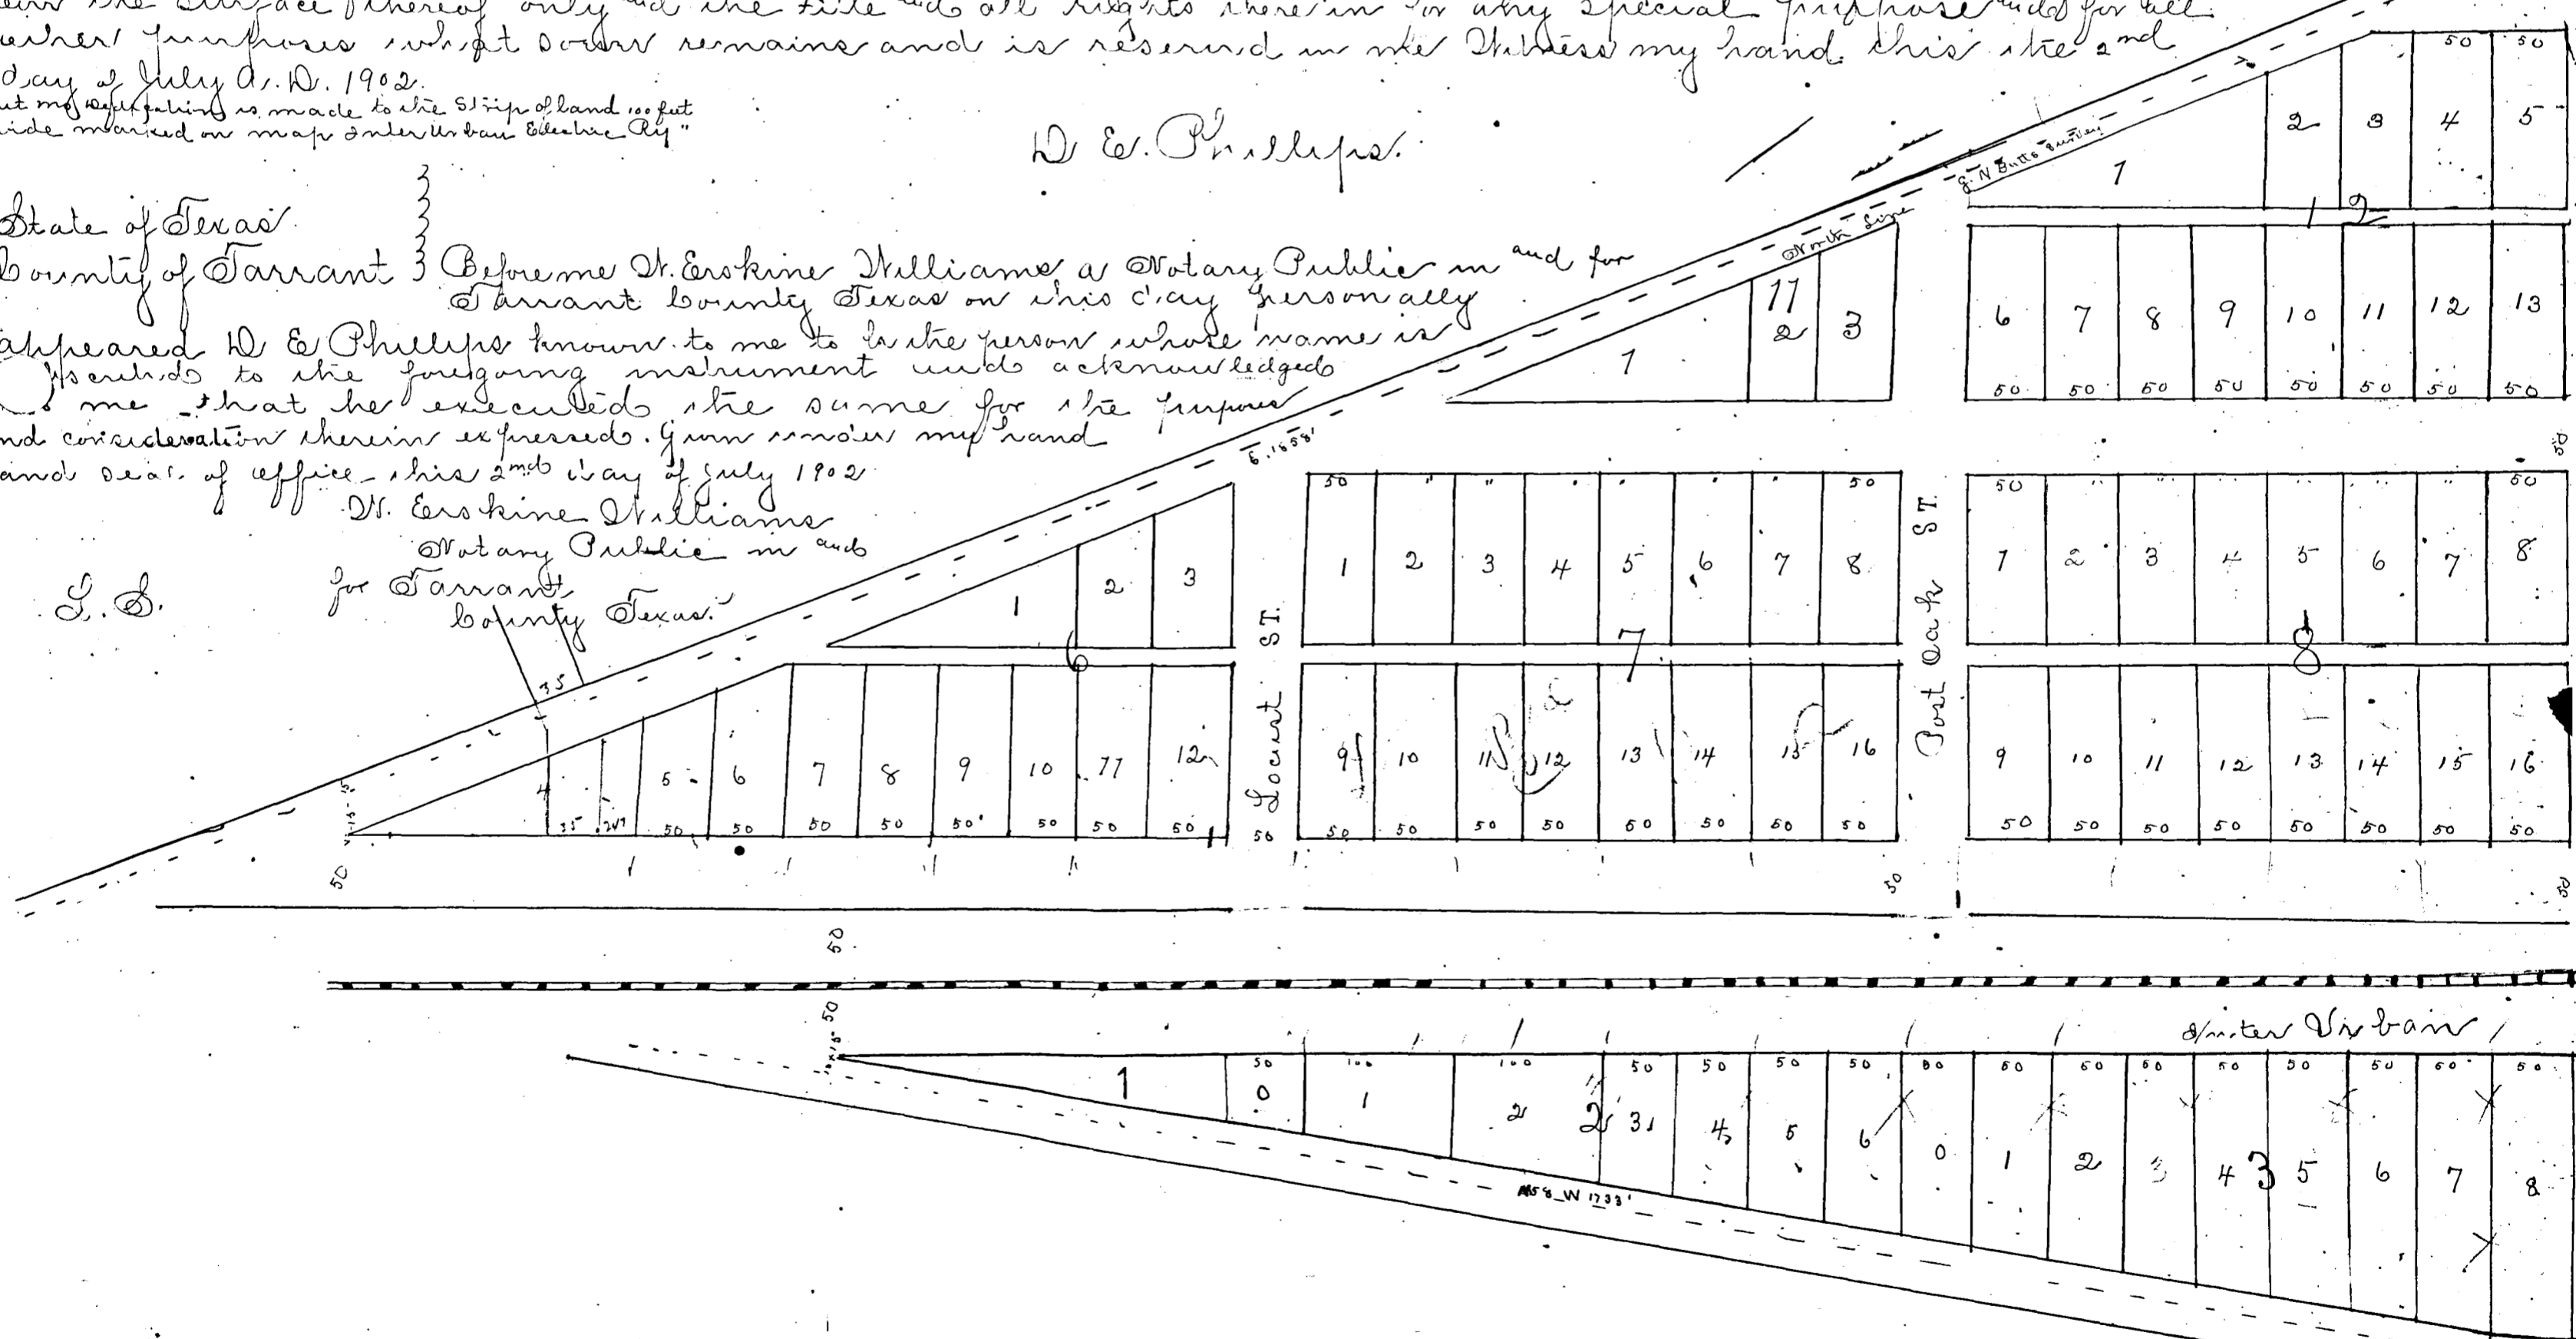 the surface thereof only and the title and all rights therein for any special purpose and for all
other purposes whatsoever remains and is reserved in me Witness my hand this the 2nd
day of July A.D. 1902.
is made to the Strip of land 100 feet
wide marked on map Inter Urban Electric Ry"
D E. Phillips.
State of Texas
County of Tarrant } Before me W. Erskine Williams a Notary Public in and for
Tarrant County Texas on this day personally
appeared D E Phillips known to me to be the person whose name is
to the foregoing instrument and acknowledged
me that he executed the same for the purposes
nd consideration therein expressed. Given under my hand
and seal of office this 2nd day of July 1902
W. Erskine Williams
Notary Public in and
for Tarrant
County Texas.
L. S.
G. N Butts Survey
North Line
50 50
1 2 3 4 5
12
6 7 8 9 10 11 12 13
50 50 50 50 50 50 50 50
11
1 2 3
50
50 " " 50
1 2 3 4 5 6 7 8
7
9 10 11 12 13 14 15 16
50 50 50 50 50 50 50 50
Post Oak ST.
50 50
1 2 3 4 5 6 7 8
8
9 10 11 12 13 14 15 16
50 50 50 50 50 50 50 50
Locust ST.
50
1 2 3
6
35
4 5 6 7 8 9 10 11 12
35 50 50 50 50 50 50 50 50
50
50
50
50
50
Inter Urban
50 100 100 50 50 50 50 50 50 50 50 50 50 50 50 50
1
0 1 2 3 4 5 6
2
0 1 2 3 4 5 6 7 8
3
W 1733'